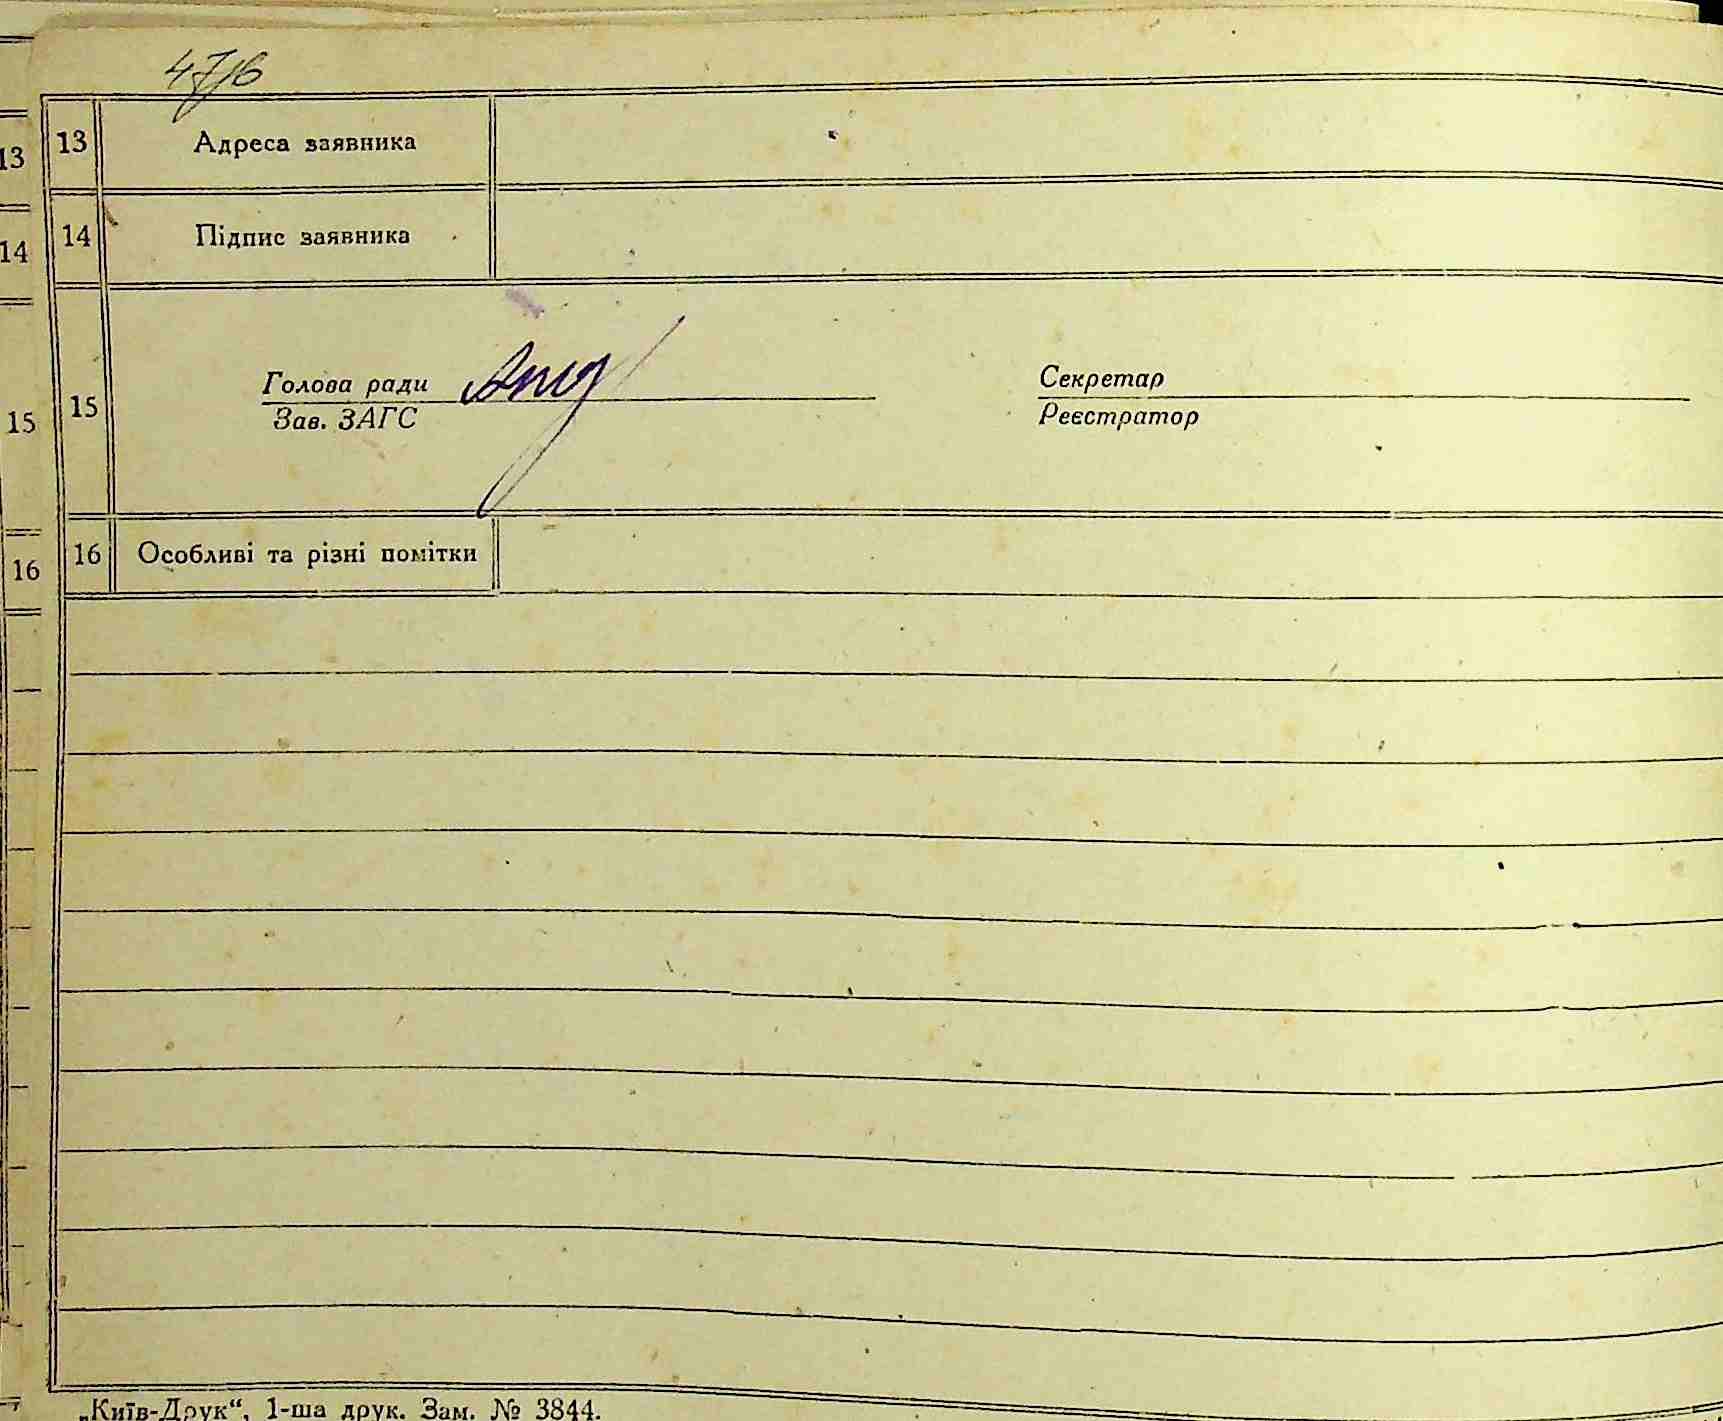 13 Адреса заявника
13
14 Підпис заявника
14
Голова ради
Секретар
15
15
Зав. ЗАГС
Реєстратор
16 Особливі та різні помітки
16
„Київ-Друк“, 1-ша друк. Зам. № 3844.